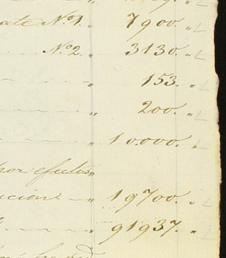 ate Nº1. " 7900. "
Nº2. " 3130. "
" 153. "
" 200. "
" 10.000. "
por efectos
ucion " 19700. "
" 91937. "